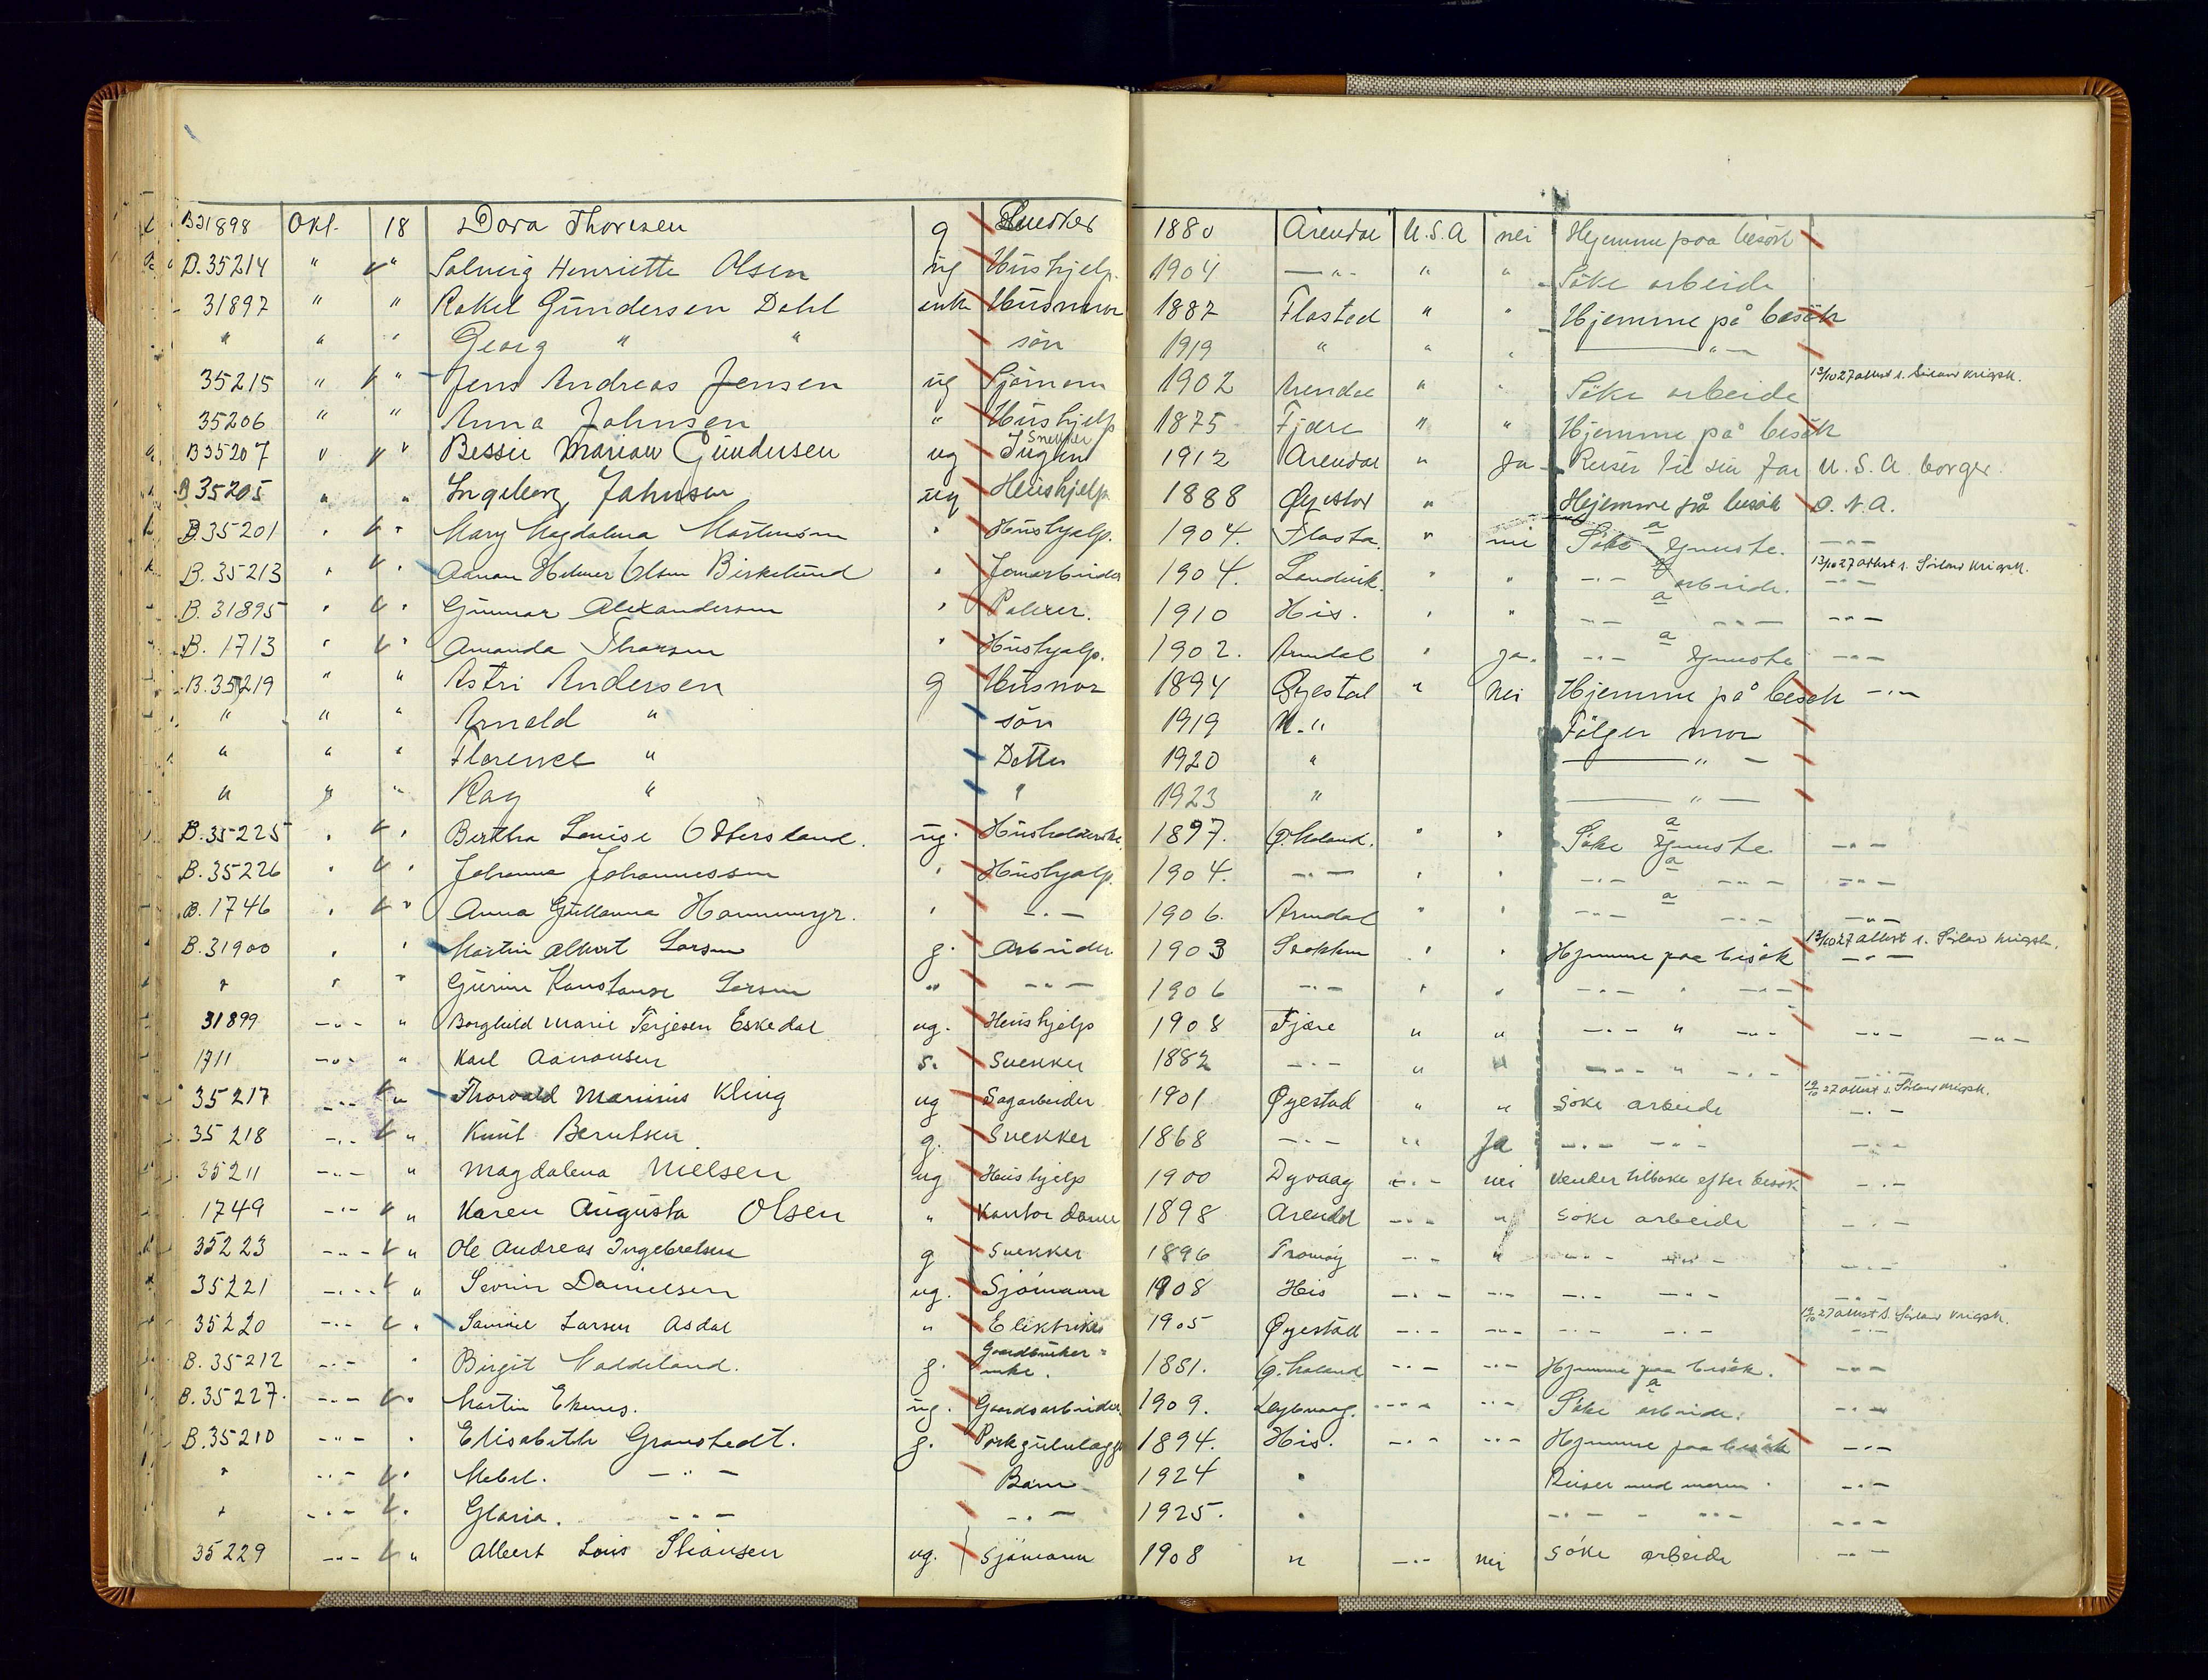 B31898 Okt. 18 Dora Thoresen g Snedker 1880 Arendal U.S.A nei Hjemme paa besök
D.35214 " " Solveig Henriette Olsen ug Hushjelp. 1904 —"- " " Söke arbeide
31897 " " Rakel Gundersen Dahl enke Husmor 1887 Flosted " " Hjemme på besök
" " " Georg " " sön 1919 " " " — " —
35215 " " Jens Andreas Jensen ug Sjömann 1902 Arendal " " Söke arbeide 19/10 27 attest s. Sörlan krigsk.
35206 " " Anna Johnsen " Hushjelp 1875 Fjære " " Hjemme på besök
B35207 " " Bessie Marion Gundersen ug Snekker Ingen 1912 Arendal " Ja Reiser til sin far U.S.A. borger.
B35205 " " Ingeborg Johnsen ug Hushjelp 1888 Øyestad " Hjemme på besök O.N.A.
B.35201 " " Mary Magdalena Martinsen " Hushjelp. 1904. Flosta. " nei Söke a tjeneste. -"-
B.35213 " " Aanon Helmer Olsen Birkelund " Jernarbeider 1904. Landvik. " " -"- arbeide. 13/10 27 attest s. Sörlan krigsk. -"-
B.31895 " " Gunnar Alexandersen " Polerer. 1910 His. " " -"- a -"- -"-
B.1713 " " Amanda Thorsen " Hushjelp. 1902. Arendal " ja. -"- a tjeneste -"-
B.35219 " " Astri Andersen g Husmor 1894 Øyestad " Nei Hjemme på besök -"-
" " " Arnold " sön 1919 U." Fölger mor
" " " Florence " Datter 1920 " — " —
" " " Kay " " 1923 " — " —
B.35225 " " Bertha Louise Ottersland. ug. Husholderske. 1897. Ø.Moland. " " Söke a tjeneste. -"-
B.35226 " " Johanna Johannessen " Hushjelp. 1904. -"- " " -"- a -"- -"-
B.1746 " " Anna Gullanna Hammmyr. " -"- 1906. Arendal " " -"- a -"- -"-
B.31900 " " Martin Albert Larsen g. Arbeider. 1903 Stokken " " Hjemme paa besök 13/10 27 attest s. Sörlan krigsk. -"-
" " " Gurine Konstanse Larsen " -"- 1906 -"- " " -"- " -"-
31899 -"- " Borghild Marie Terjesen Eskedal ug. Hushjelp 1908 Fjære " " -"- " -"- -"- -"-
1711 -"- " Karl Aanonsen s. Snekker 1882 -"- " " -"- " -"- -"-
35217 -"- " Thorvald Marinius Kling ug Sagarbeider 1901 Øyestad " " söke arbeide 19/10 27 attest s. Sörlan krigsk. -"-
35218 -"- " Knut Berntsen g. Snekker 1868 -"- " Ja -"- -"- -"-
35211 -"- " Magdalena Nielsen ug Hushjelp 1900 Dyvaag -"- nei Vender tilbake efter besök -"-
1749 -"- " Karen Augusta Olsen " Kontordame 1898 Arendal -"- " söke arbeide -"-
35223 -"- " Ole Andreas Ingebretsen g Snekker 1896 Tromöy -"- " -"- -"- -"-
35221 -"- " Severin Danielsen ug. Sjömann 1908 His -"- -"- -"- -"- -"-
35220 -"- " Samuel Larsen Asdal " Elektriker 1905 Øyestad -"- -"- -"- -"- 19/10 27 attest s. Sörlan krigsk. -"-
B.35212 -"- " Birgit Vaddeland. g. Gaardbruker enke. 1881. Ø.Moland -"- -"- Hjemme paa besök. -"-
B.35227. -"- " Martin Eknes. ug. Gaardsarbeider 1909. -"- -"- Söke a arbeide. -"-
B.35210 -"- " Elisabeth Granstedt. g. 1894. His. -"- -"- Hjemme paa besök -"-
" -"- " Mabel. -"- Barn 1924 " Reiser med moren. -"-
" -"- " Gloria. -"- -"- 1925. " -"- - -"- -"-
35229 -"- " Albert Louis ug. Sjömann 1908 " -"- nei söke arbeide -"-